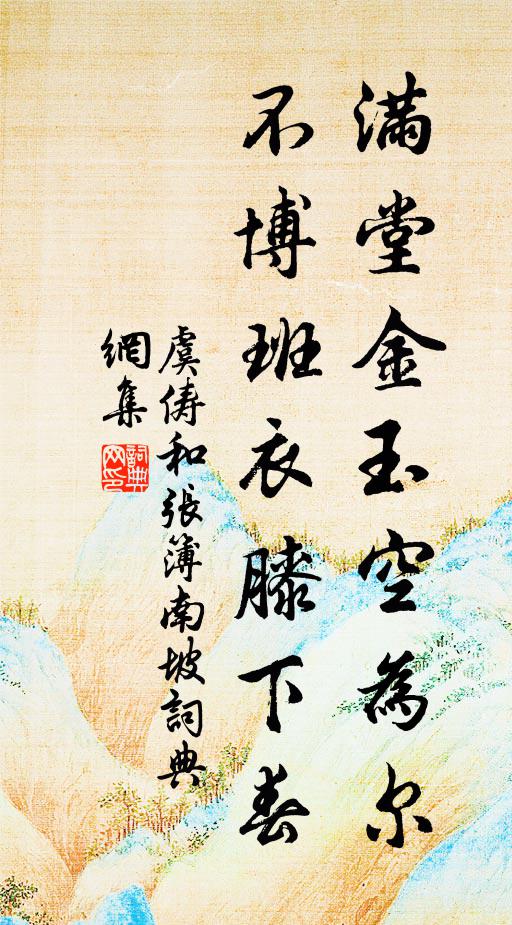 滿堂金玉空為尔
不博班衣膝下春
虞俦和張簿南坡詞典
網集
詞典
网印